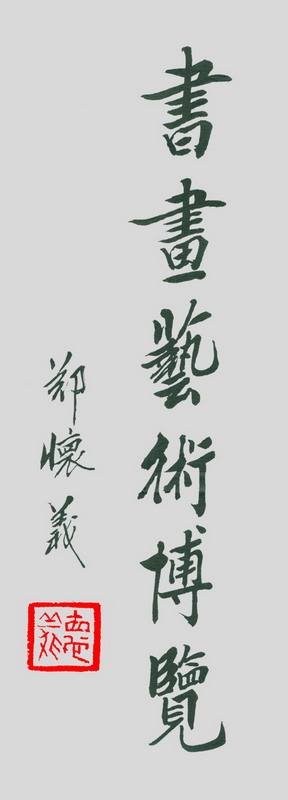 書畫藝術博覽
郑懷義